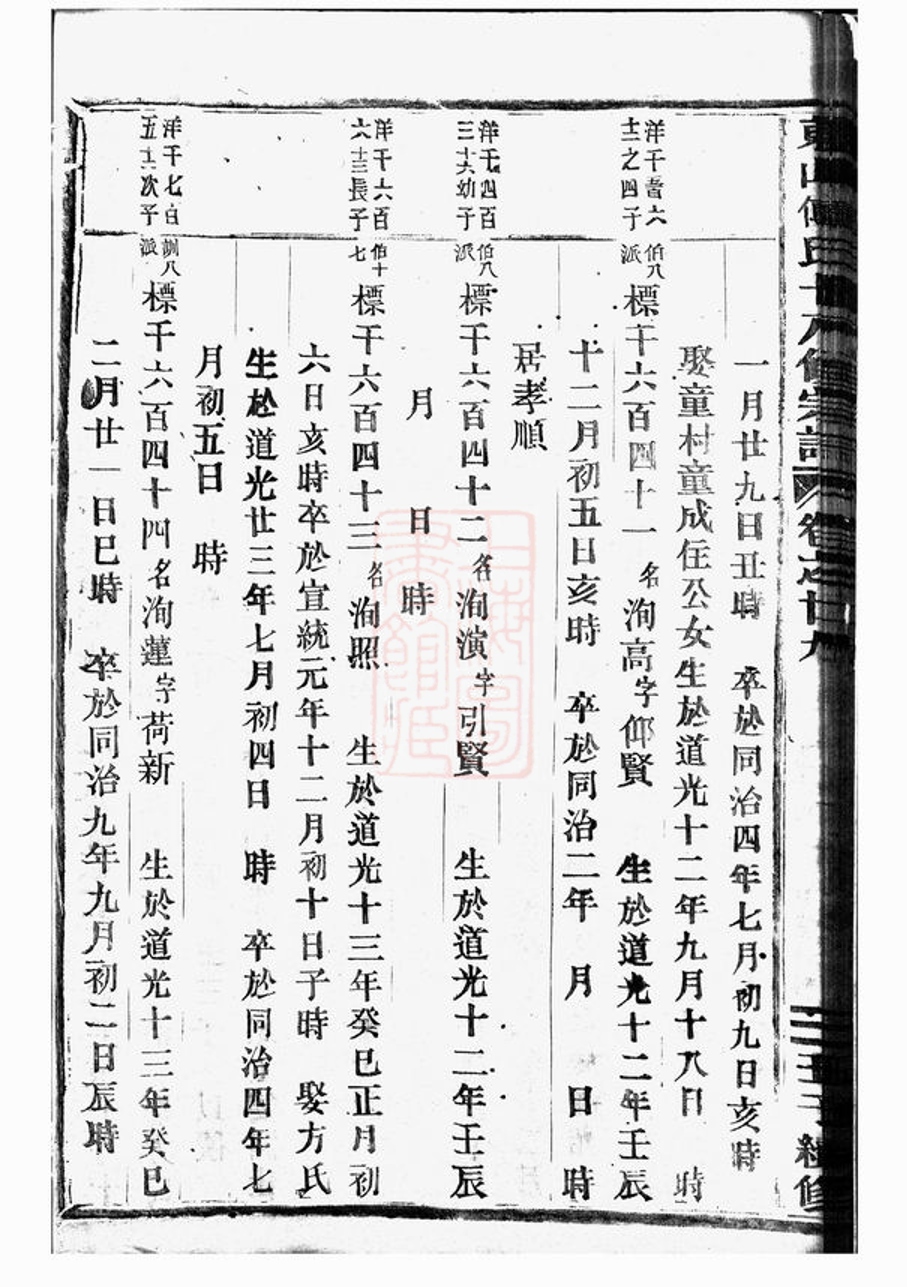 東山傅氏十八修宗譜 卷之廿九 壬子續修
一月廿九日丑時 卒於同治四年七月初九日亥時
娶童村童成住公女生於道光十二年九月十八日 時
洋千 六十三之四子 伯八派 標千六百四十一 名洵高字仰賢 生於道光十二年壬辰
十二月初五日亥時 卒於同治二年 月 日 時
居孝順
洋千四百三十六幼子 伯八派 標千六百四十二 名洵演字引賢 生於道光十二年壬辰
月 日 時
洋千六百六十三長子 伯十七 標千六百四十三 名洵照 生於道光十三年癸巳正月初
六日亥時卒於宣統元年十二月初十日子時 娶方氏
生於道光廿三年七月初四日 時 卒於同治四年七
月初五日 時
洋千七百五十六次子 訓八派 標千六百四十四 名洵蓮字荷新 生於道光十三年癸巳
二月廿一日巳時 卒於同治九年九月初二日辰時
上海圖書館藏